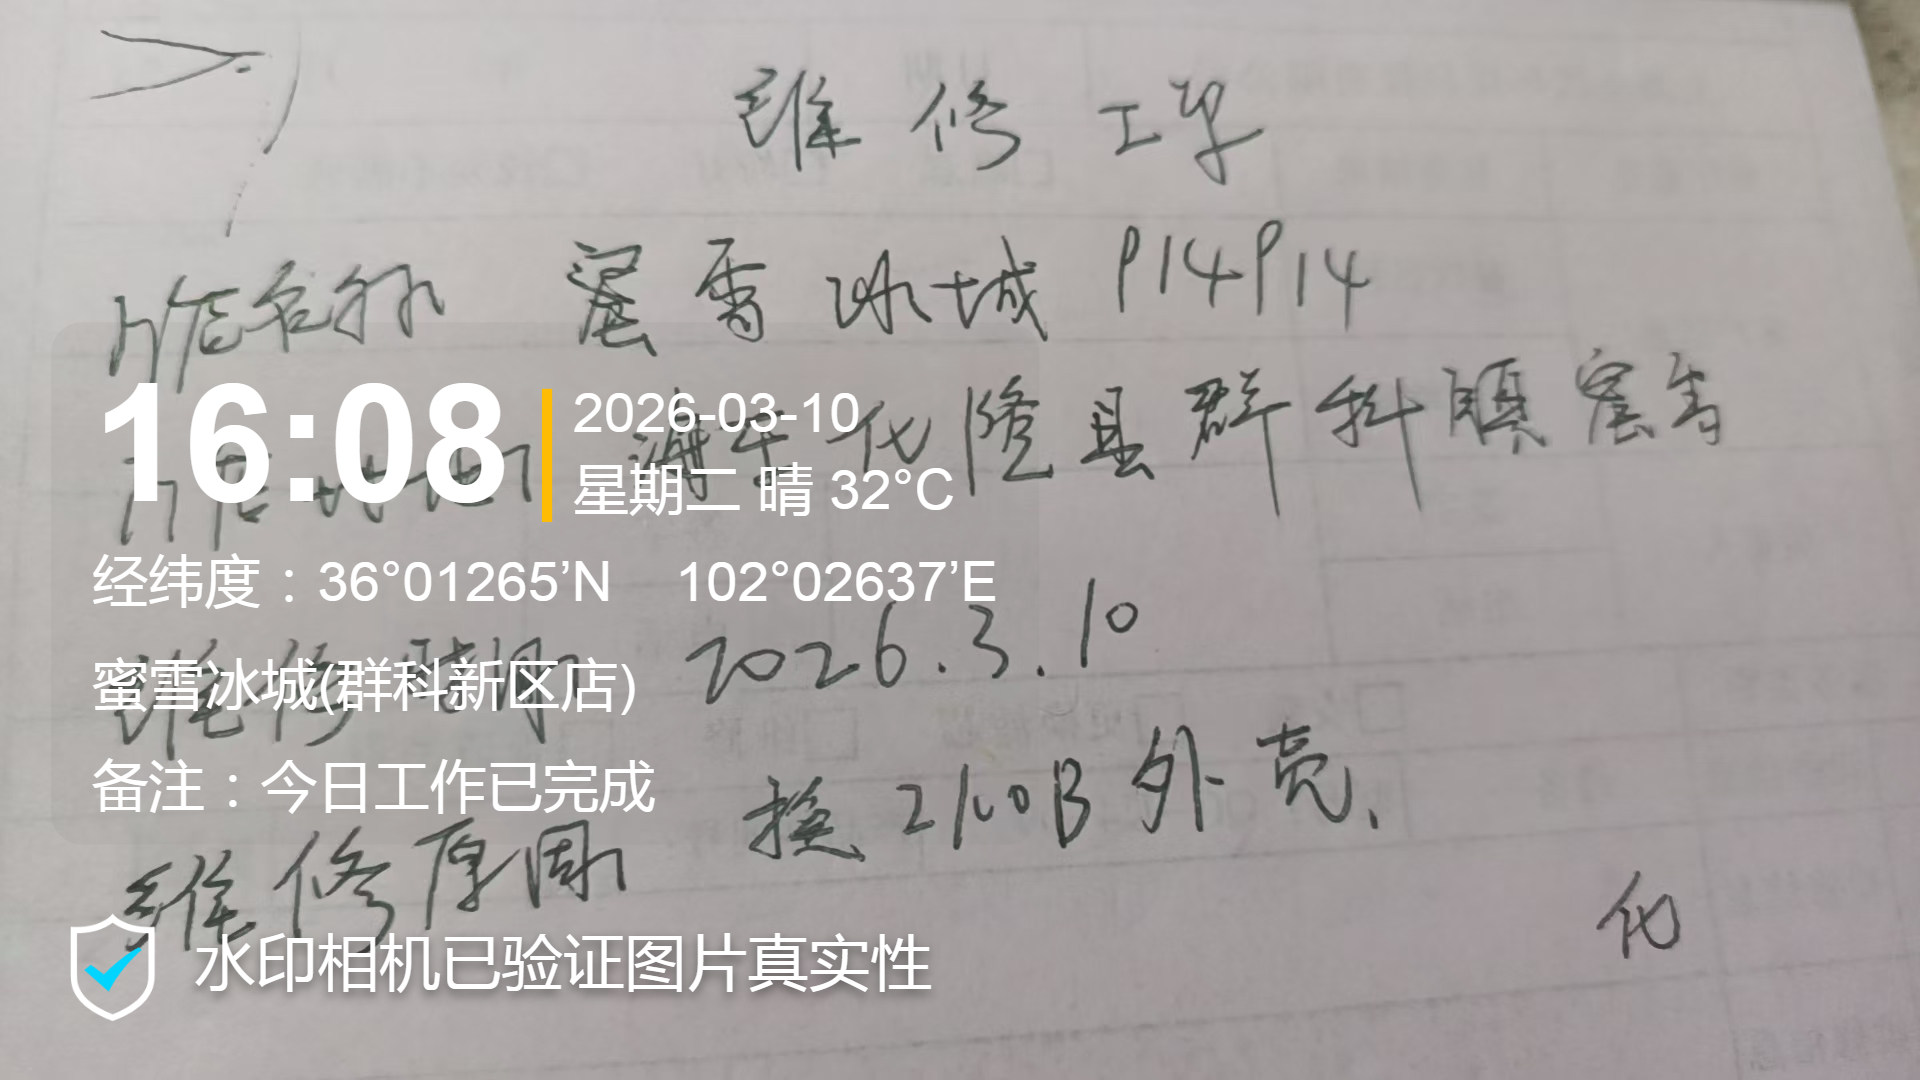 维修工单
门店名称 蜜雪冰城 P14P14
门店地址 海东化隆县群科镇蜜雪
维修时间 2026.3.10
维修原因 换2100B外壳、
化
16:08
2026-03-10
星期二 晴 32°C
经纬度：36°01265’N 102°02637’E
蜜雪冰城(群科新区店)
备注：今日工作已完成
水印相机已验证图片真实性